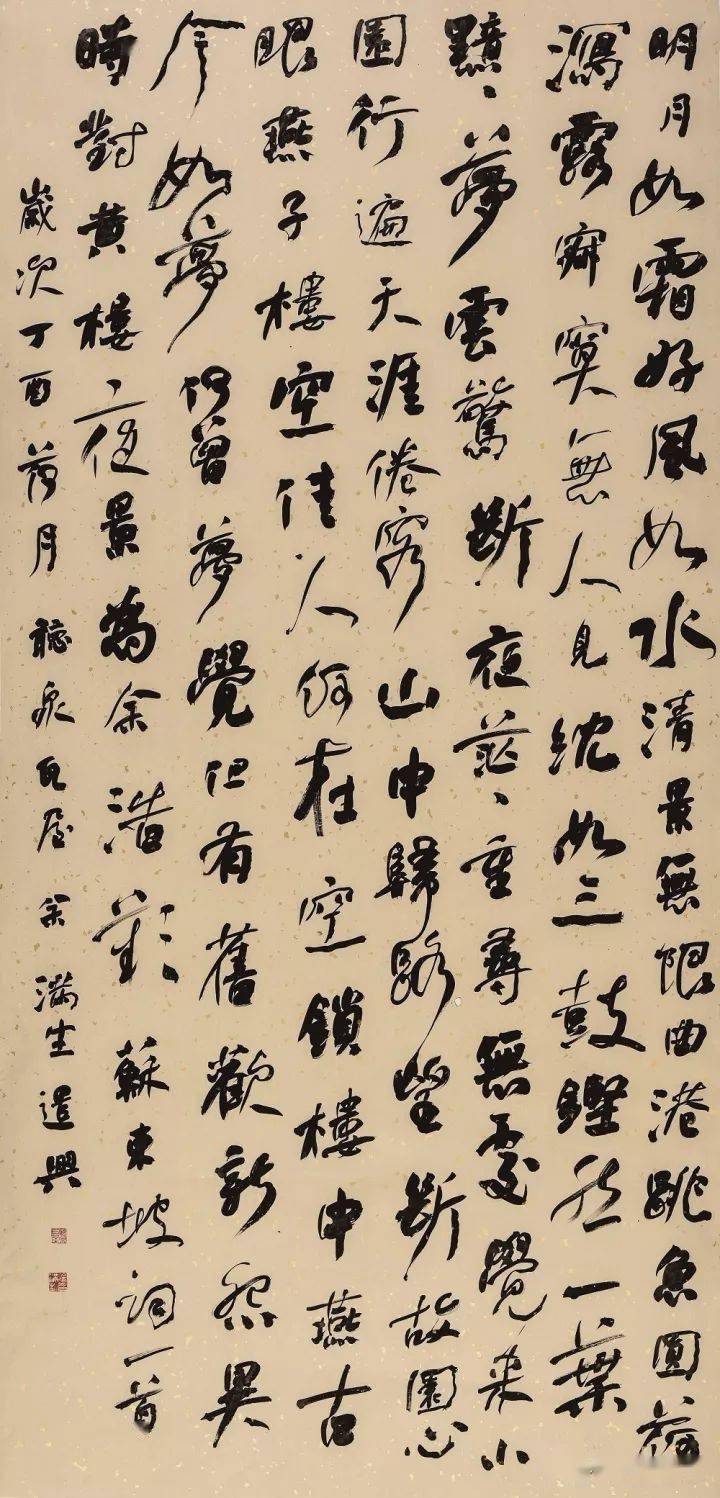 明月如霜好風如水清景無限曲港跳魚圓荷
瀉露寂寞無人見紞如三鼓鏗然一葉
黯、夢雲驚斷夜茫、重尋無處覺來小
園行遍天涯倦客山中歸路望斷故園心
眼燕子樓空佳人何在空鎖樓中燕古
今如夢何曾夢覺但有舊歡新怨異
時對黃樓夜景為余浩歎 蘇東坡詞一首
歲次丁酉荷月 聽泉瓦屋 余滿生遣興